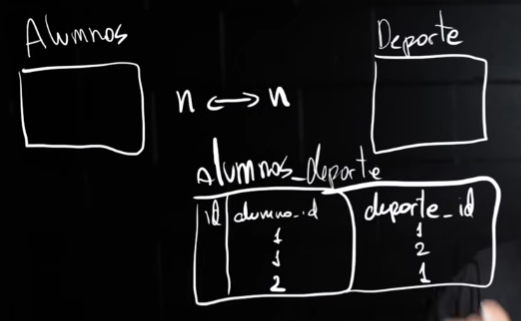 Alumnos
Deporte
n ↔ n
Alumnos_deporte
id alumno_id deporte_id
1 1
1 2
2 1